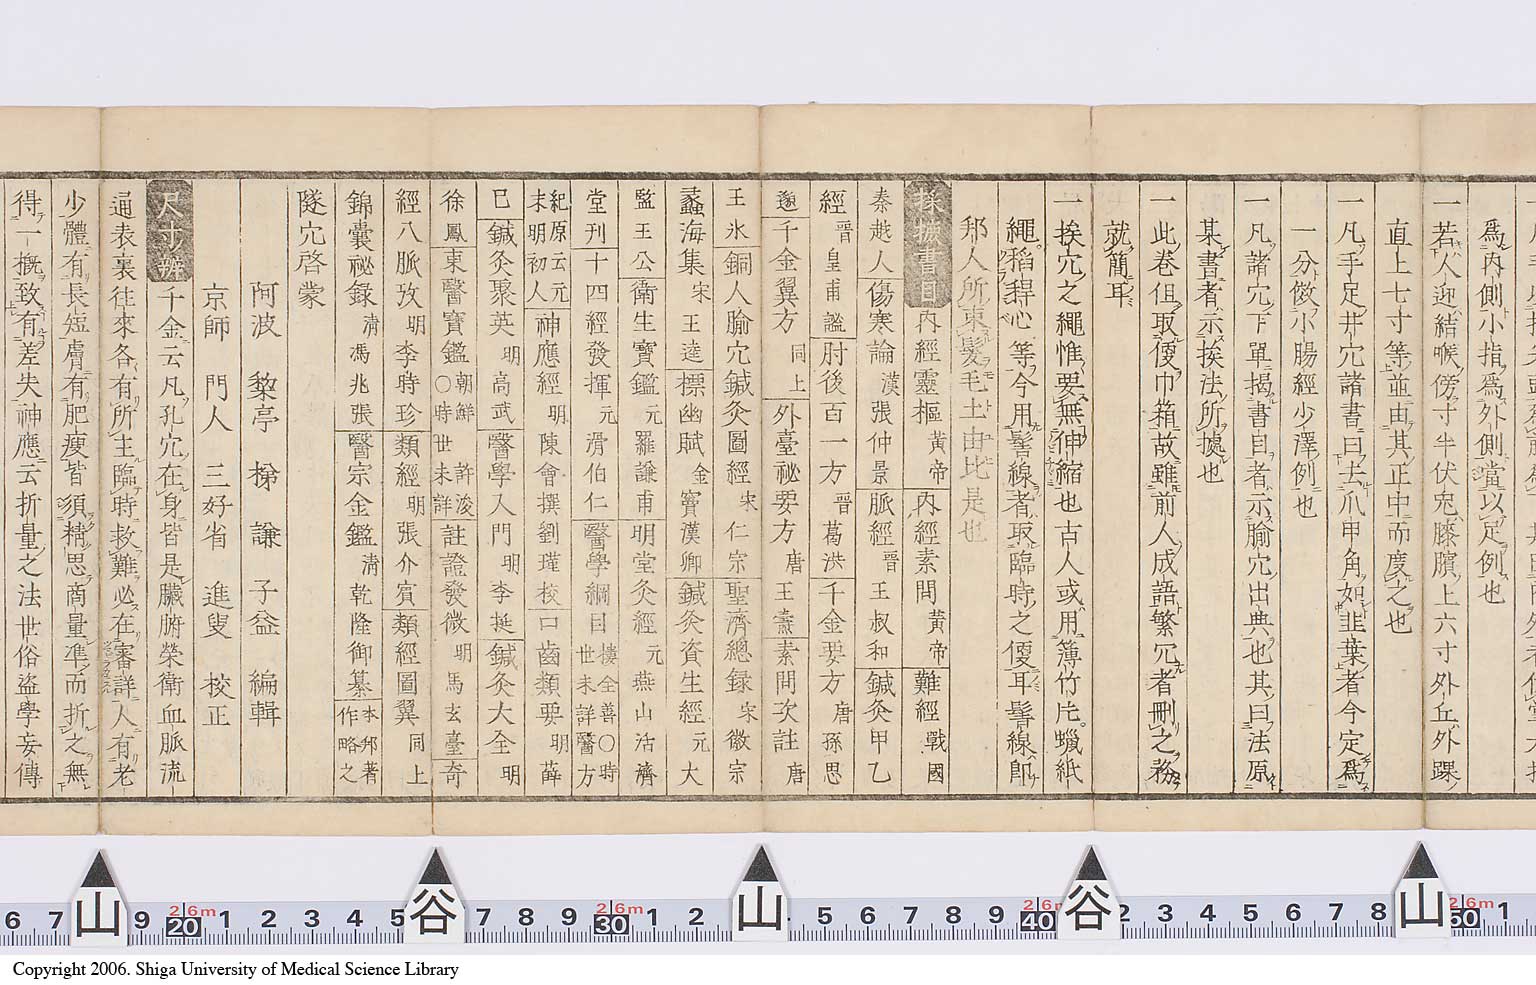 爲内側小指爲外側當以足例也
一若人迎結喉傍寸半伏兎膝臏上六寸外丘外踝
直上七寸等並由其正中而度之也
一凡手足井穴諸書曰去爪甲角如韭葉者今定爲
一分倣小腸經少澤例也
一凡諸穴下單揭書目者示腧穴出典也其曰法原
某書者示挨法所據也
一此卷但取便巾箱故雖前人成語繁冗者刪之務
就簡耳
一挨穴之繩惟要無伸縮也古人或用簿竹片蠟紙
繩稻稈心等今用髻線者取臨時之便耳髻線卽
邦人所束髮毛土由比是也
採摭書目 内經靈樞黃帝 内經素問黃帝 難經戰國
秦越人 傷寒論漢張仲景 脈經晉王叔和 鍼灸甲乙
經晉皇甫謐 肘後百一方晉葛洪 千金要方唐孫思
邈 千金翼方同上 外臺祕要方唐王燾 素問次註唐
王氷 銅人腧穴鍼灸圖經宋仁宗 聖濟總録宋徽宗
蠡海集宋王逵 標幽賦金竇漢卿 鍼灸資生經元大
監王公 衛生寶鑑元羅謙甫 明堂灸經元燕山活濟
堂刊 十四經發揮元滑伯仁 醫學綱目樓全善〇時世未詳 醫方
紀原云元末明初人 神應經明陳會撰劉瑾校 口齒類要明薛
巳 鍼灸聚英明高武 醫學入門明李挻 鍼灸大全明
徐鳳 東醫寶鑑朝鮮許浚〇時世未詳 註證發微明馬玄臺 奇
經八脈攷明李時珍 類經明張介賓 類經圖翼同上
錦囊祕錄清馮兆張 醫宗金鑑清乾隆御纂 本邦著作略之
隧穴啓蒙
阿波 棃亭 梯 謙 子益 編輯
京師 門人 三好省 進叟 校正
尺寸辨 千金云凡孔穴在身皆是臟腑榮衛血脈流
通表裏往來各有所主臨時救難必在審詳人有老
少體有長短膚有肥瘦皆須精思商量準而折之無
得一概致有差失神應云折量之法世俗盜學妄傳
山 谷 山 谷 山
6 7 9 20 1 2 3 4 5 7 8 9 30 1 2 5 6 7 8 9 40 2 3 4 5 6 7 8 50 1
2 6m 2 6m 2 6m 2 6m
Copyright 2006. Shiga University of Medical Science Library